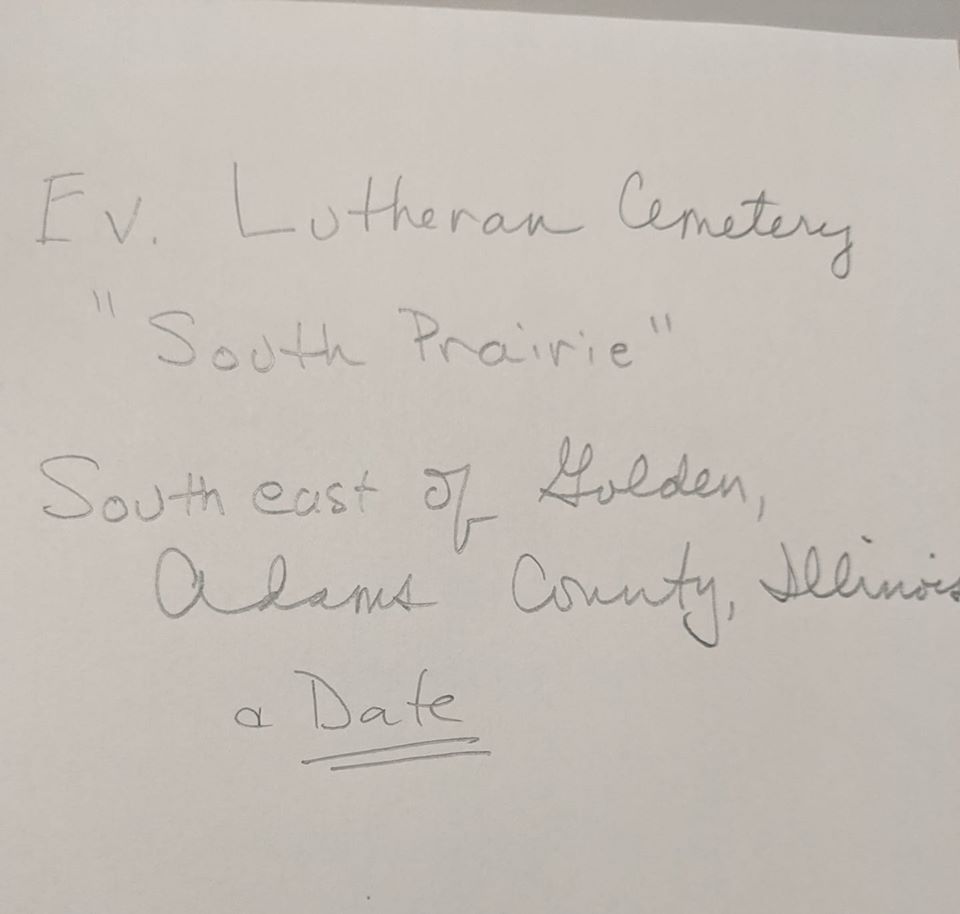 Ev. Lutheran Cemetery
"South Prairie"
Southeast of Golden,
Adams County, Illinois
a Date